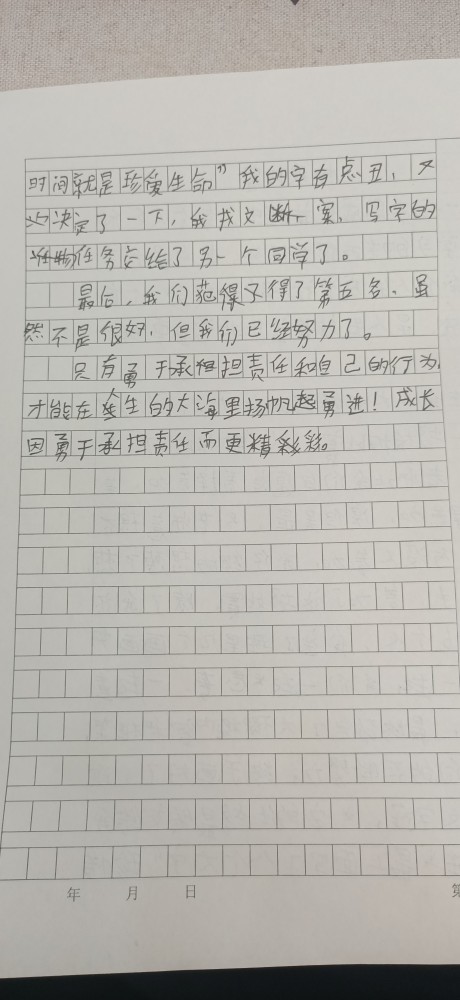 时间就是珍爱生命”我的字有点丑,又
决定了一下,我找文断、案、写字的
任务交给了另一个同学了。
最后,我们范得又得了第五名、虽
然不是很好,但我们已经努力了。
只有勇于承担责任和自己的行为,
才能在人生的大海里扬帆起勇进!成长
因勇于承担责任而更精彩。
年 月 日
第